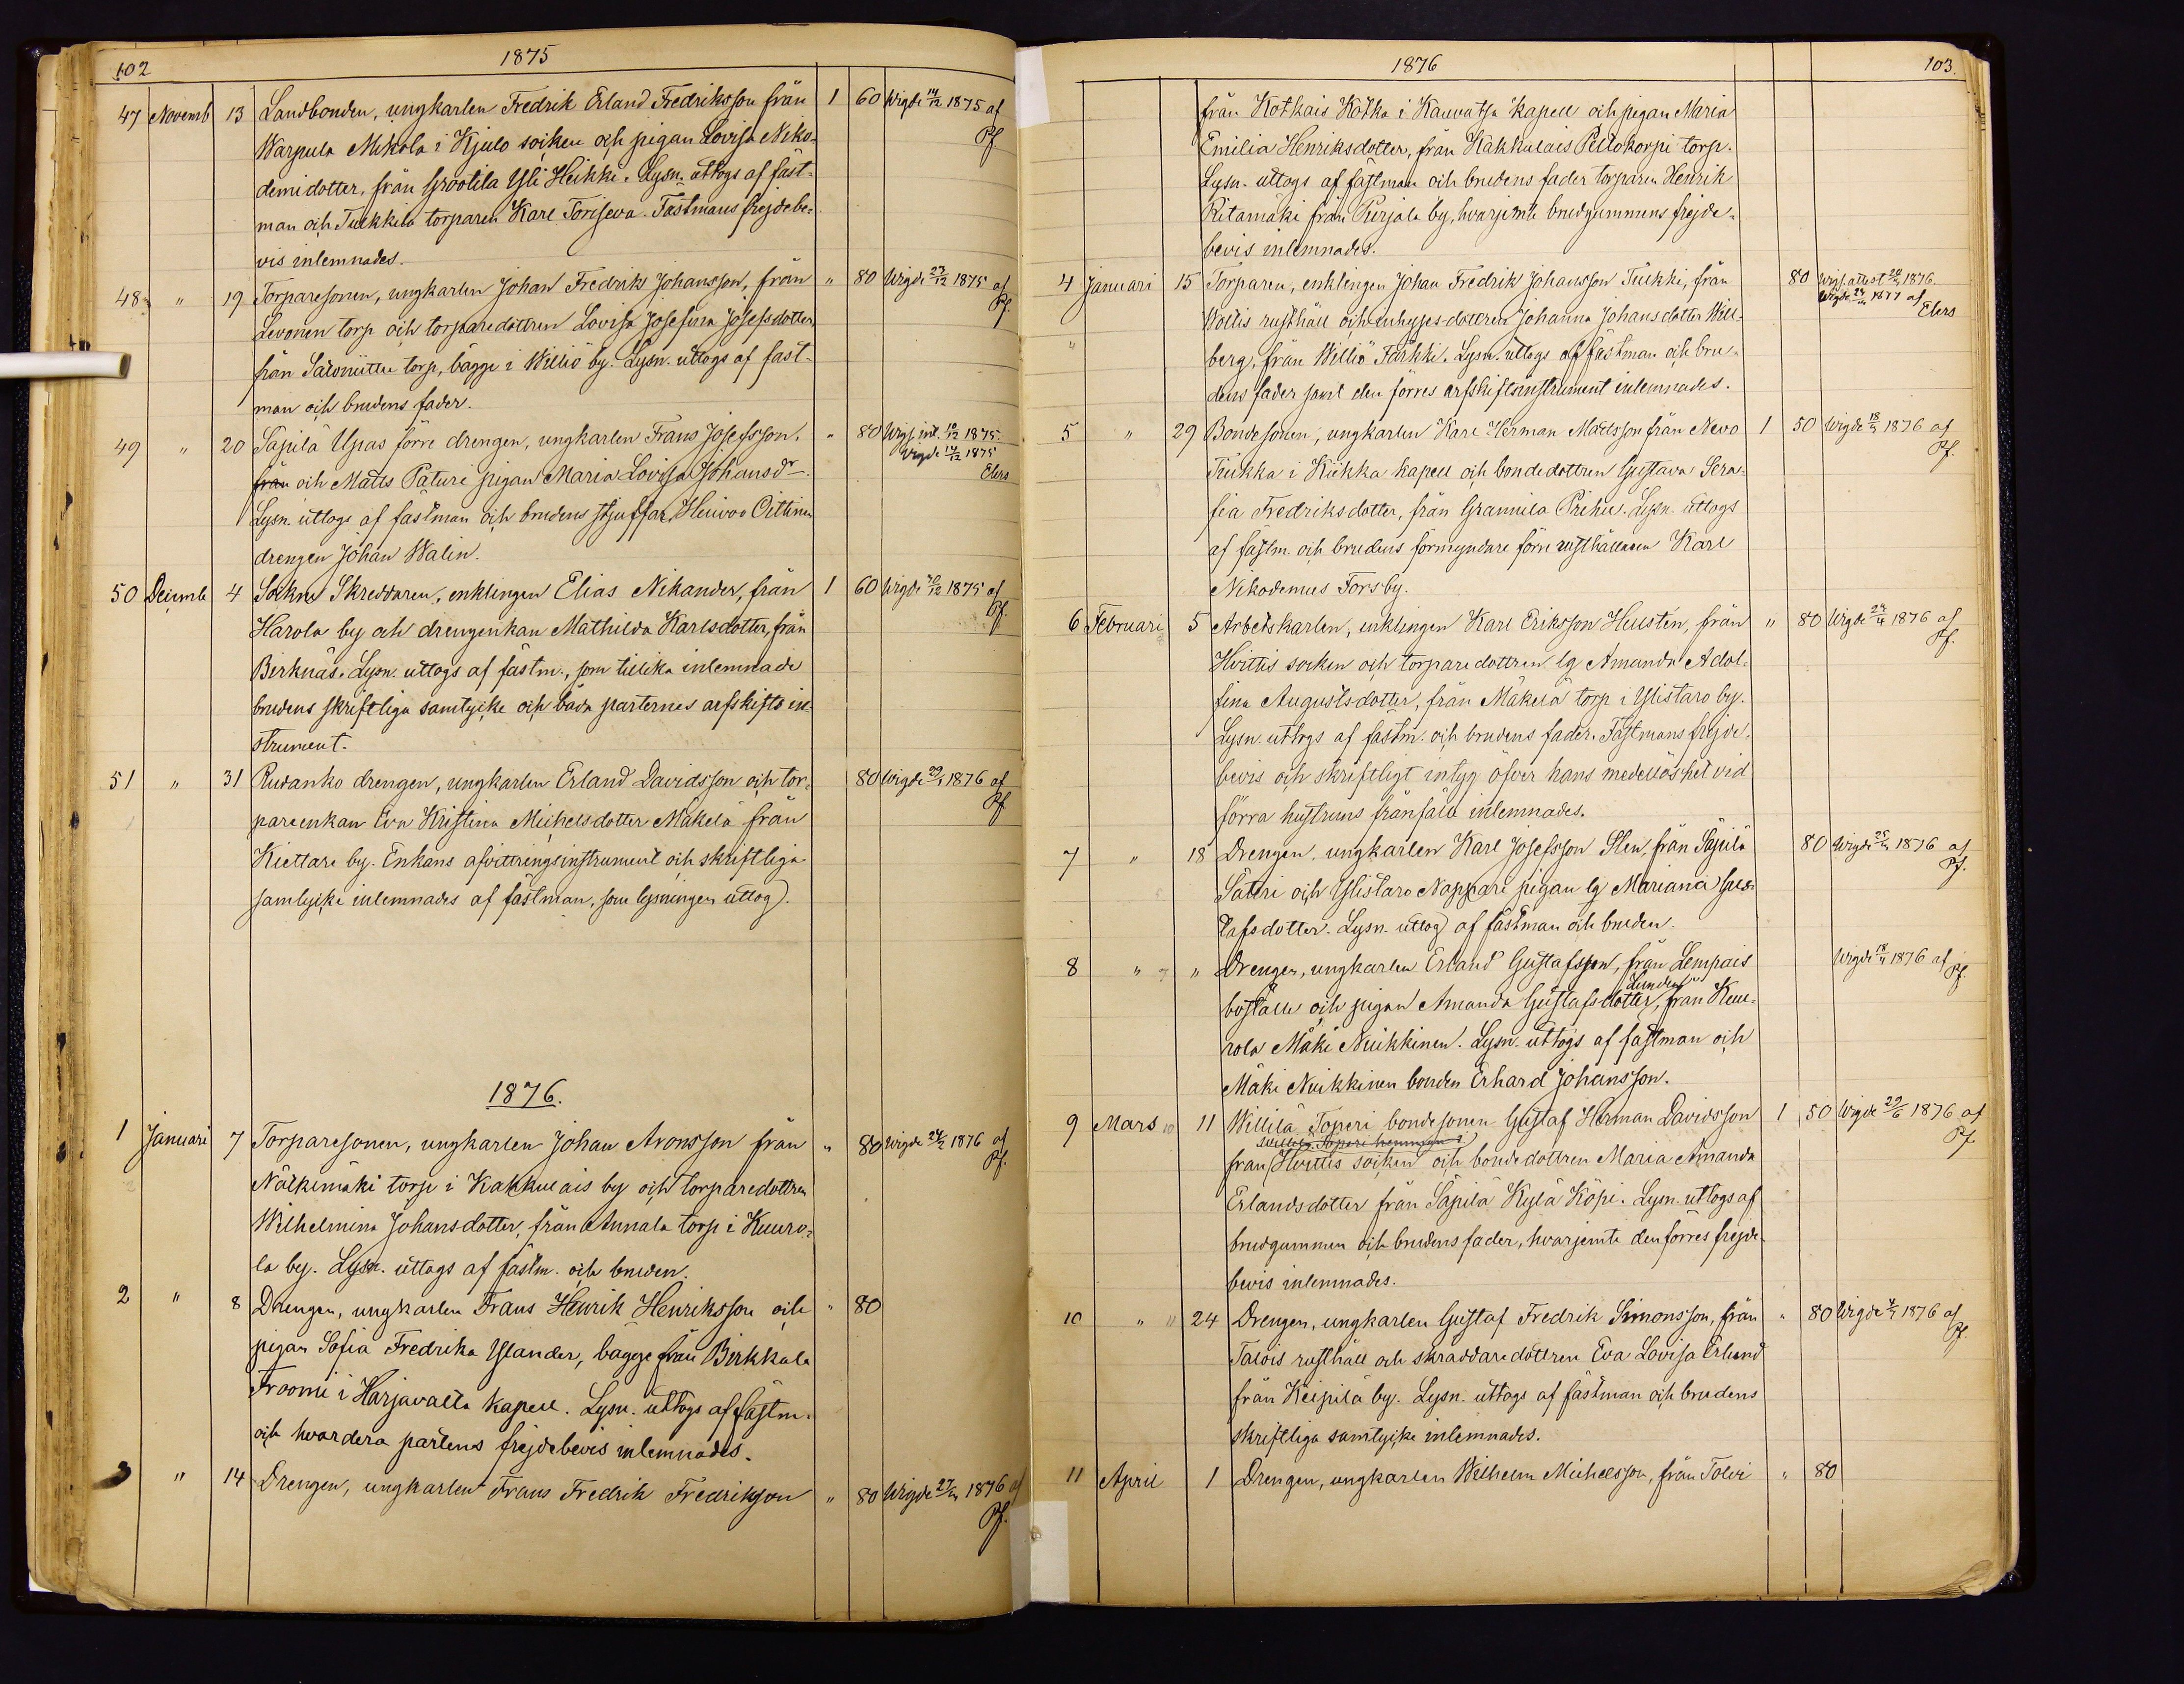 102
1875
47 Novemb 13 Landbonden, ungkarlen Fredrik Erland Fredriksson från 1 60 Wigde 14/12 1875 af Pf.
Warpula Mikola i Kjulo socken och pigan Lovisa Niko-
demidotter, från Grootila Yli Heikki. Lysn. uttogs af fäst-
man och Tuckkila torparen Karl Toriseva. Fästmans frejdebe-
vis inlemnades.
48 " 19 Torparesonen, ungkarlen Johan Fredrik Johansson, från " 80 Wigde 27/12 1875 af Pf.
Levonen torp och torparedottren Lovisa Josefina Josefsdotter
från Saloniittu torp, bägge i Williö by. Lysn. uttogs af fäst-
man och brudens fader.
49 " 20 Säpilä Upas förre drengen, ungkarlen Frans Josefsson, " 80 Wigs. int. 12/12 1875.
Wigde 12/12 1875
från och Matts Paturi pigan Maria Lovisa Johansdr. Elers
Lysn. uttogs af fästman och brudens styffar, Heinoo Oittinen
drengen Johan Walin.
50 Decemb 4 Sockne Skreddaren, enklingen Elias Nikander, från 1 60 Wigde 30/12 1875 af Pf.
Harola by och drengenkan Mathilda Karlsdotter, från
Birknäs. Lysn. uttogs af fästm., som tillika inlemnade
brudens skriftliga samtycke och båda parternes arfskifts in-
strument.
51 " 31 Rudanko drengen, ungkarlen Erland Davidsson och tor- 80 Wigde 30/1 1876 af Pf
pareenkan Eva Kristina Michelsdotter Mäkelä från
Kiettare by. Enkans afvittringsinstrument och skriftliga
samtycke inlemnades af fästman, som lysningen uttog.
1876.
1 Januari 7 Torparesonen, ungkarlen Johan Aronsson från " 80 Wigde 24/2 1876 af Pf.
Nälkimäki torp i Kakkulais by och torparedottren
Wilhelmina Johansdotter, från Annala torp i Kuuro-
la by. Lysn. uttogs af fästm. och bruden.
2 " 8 Drengen, ungkarlen Frans Henrik Henriksson och " 80
pigan Sofia Fredrika Ylander, bägge från Birkkala
Froomi i Harjavalta kapell. Lysn. uttogs af fästm.
och hvardera partens frejdebevis inlemnades.
3 " 14 Drengen, ungkarlen Frans Fredrik Fredriksson " 80 Wigde 27/2 1876 af Pf.
1876
103.
från Kotkais Kotka i Kauvatsa kapell och pigan Maria
Emilia Henriksdotter, från Kakkulais Peltokorpi torp.
Lysn. uttogs af fästman och brudens fader torparen Henrik
Ritamäki från Purjala by, hvarjemte brudgummens frejde-
bevis inlemnades.
4 Januari 15 Torparen, enklingen Johan Fredrik Johansson Tuckki, från 80 Wigs. attest 20/2 1876.
Wigde 24/2 1877 af Elers
Woitis rusthåll och inhysesdottren Johanna Johansdotter Will-
berg, från Williö Färkki. Lysn. uttogs af fästman och bru-
dens fader samt den förres arfskiftsinstrument inlemnades.
5 " 29 Bondesonen, ungkarlen Karl Herman Mattsson från Nevo 1 50 Wigde 18/3 1876 af Pf.
Tuukka i Kiikka kapell och bondedottren Gustava Sera-
fia Fredriksdotter, från Grannila Prihu. Lysn. uttogs
af fästm. och brudens förmyndare förre rusthållaren Karl
Nikodemus Forsby.
6 Februari 5 Arbetskarlen, enklingen Karl Eriksson Hustén, från " 80 Wigde 24/4 1876 af Pf.
Hvittis socken och torparedottren lg Amanda Adol-
fina Augustsdotter, från Mäkelä torp i Ylistaro by.
Lysn. uttogs af fästm. och brudens fader. Fästmans frejde-
bevis och skriftligt intyg öfver hans medellöshet vid
förra hustruns frånfälle inlemnades.
7 " 18 Drengen, ungkarlen Karl Josefsson Sten, från Säpilä 80 Wigde 25/3 1876 af Pf.
Säteri och Ylistaro Nappari pigan lg Mariana Gus-
tafsdotter. Lysn. uttog af fästman och bruden.
8 " " Drengen, ungkarlen Erland Gustafsson, från Lempais Wigde 18/4 1876 af Pf.
boställe och pigan Amanda Gustafsdotter, från Kuu-
rola Mäki Nuikkinen. Lysn. uttogs af fästman och
Mäki Nuikkinen bonden Erhard Johansson.
9 Mars 11 Willilä Toperi bondesonen Gustaf Herman Davidsson 1 50 Wigde 29/6 1876 af Pf.
från Hvittis socken och bondedottren Maria Amanda
Erlandsdotter från Säpilä Kylä Köpi. Lysn. uttogs af
brudgummen och brudens fader, hvarjemte den förres frejde-
bevis inlemnades.
10 " 24 Drengen, ungkarlen Gustaf Fredrik Simonsson, från " 80 Wigde 1876 af Pf
Talois rusthåll och skräddaredottren Eva Lovisa Erlund
från Keipilä by. Lysn. uttogs af fästman och brudens
skriftliga samtycke inlemnades.
11 April 1 Drengen, ungkarlen Wilhelm Michelsson, från Tolvi " 80